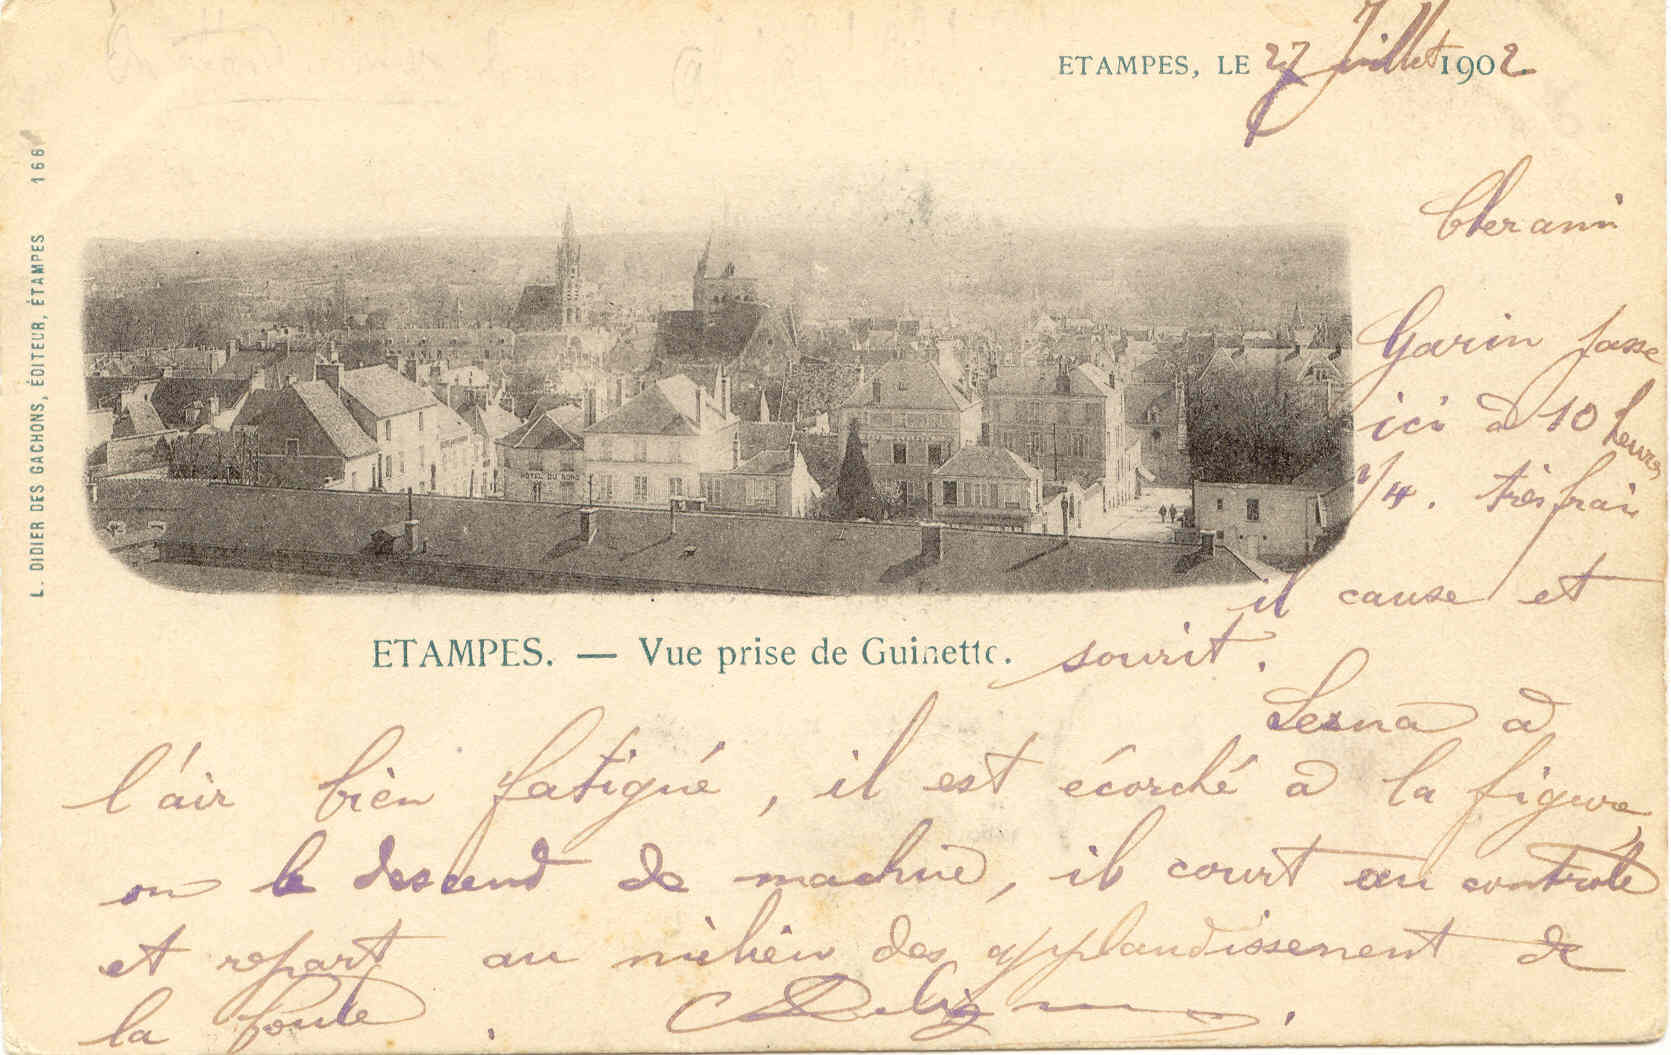 ETAMPES, LE 27 Juillet 1902.
L. DIDIER DES GACHONS, ÉDITEUR, ÉTAMPES 166
Cher ami
Garin passe
ici à 10 heures
1/4. très frais
il cause et
sourit.
HOTEL DU NORD
ETAMPES. — Vue prise de Guinette.
Lesna a
l'air bien fatigué, il est écorché a la figure
on le descend de machine, il court au contrôle
et repart au milieu des applaudissement de
la foule.